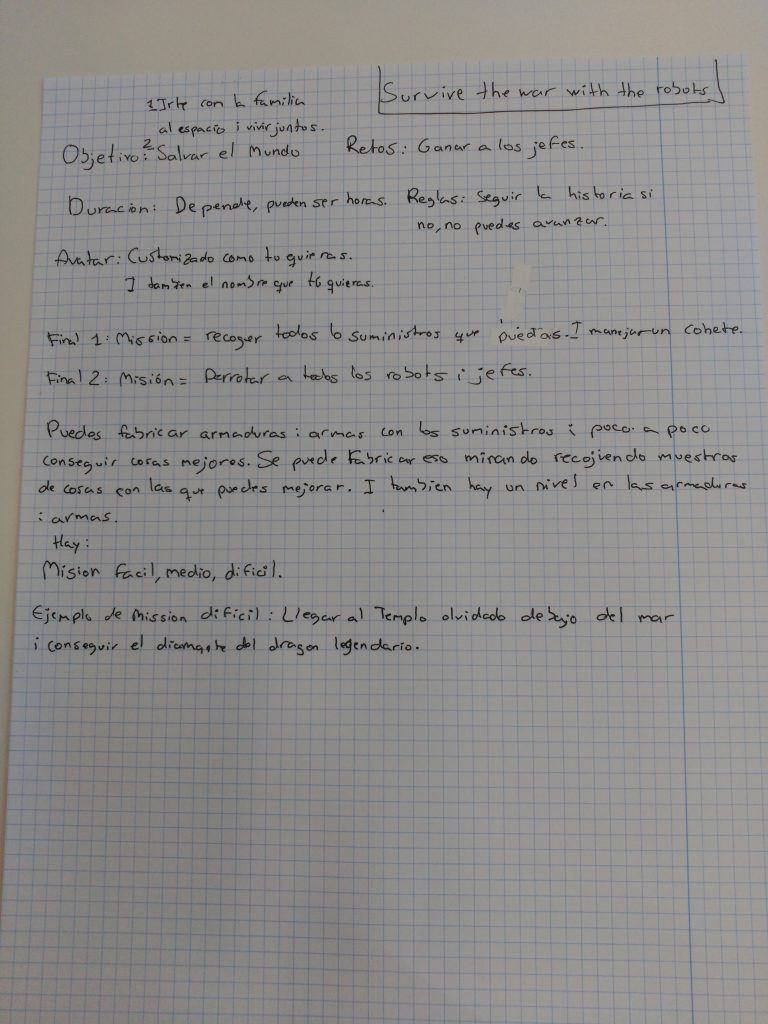 Survive the war with the robots
1 Irte con la familia
al espacio i vivir juntos.
Objetivo: 2 Salvar el Mundo
Retos: Ganar a los jefes.
Duración: Depende, pueden ser horas.
Reglas: Seguir la historia si
no, no puedes avanzar.
Avatar: Customizado como tu quieras.
I tambien el nombre que tú quieras.
Final 1: Mission = recoger todos lo suministros que puedas. I manejar un cohete.
Final 2: Misión = Derrotar a todos los robots i jefes.
Puedes fabricar armaduras i armas con los suministros i poco a poco
conseguir cosas mejores. Se puede Fabricar eso mirando recojiendo muestras
de cosas con las que puedes mejorar. I tambien hay un nivel en las armaduras
i armas.
Hay:
Mision facil, medio, dificil.
Ejemplo de Mission dificil: Llegar al Templo olvidado debajo del mar
i conseguir el diamante del dragon legendario.